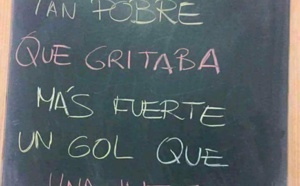 TAN POBRE
QUE GRITABA
MÁS FUERTE
UN GOL QUE
UNA